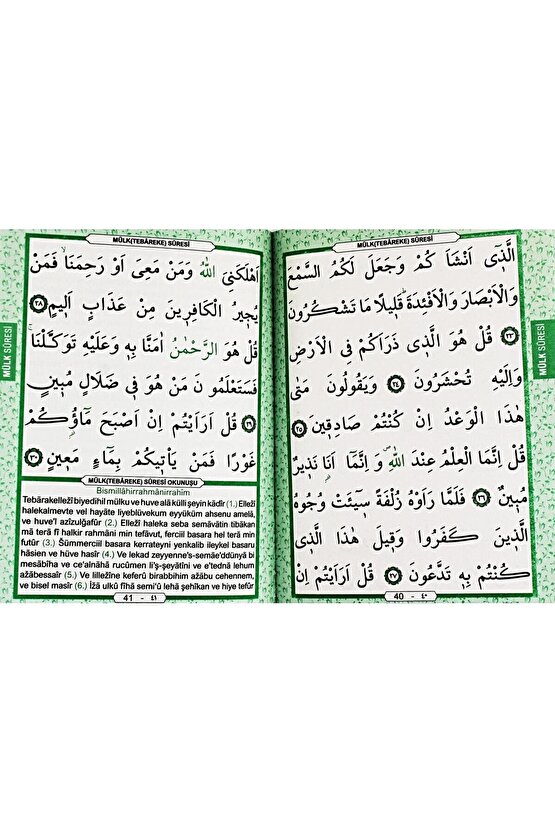 MÜLK(TEBÂREKE) SÛRESİ
الَّذ۪ٓي اَنْشَاَ كُمْ وَجَعَلَ لَكُمُ السَّمْعَ
وَالْاَبْصَارَ وَالْاَفْئِدَةَ قَل۪يلًا مَا تَشْكُرُونَ
﴿٢٣﴾ قُلْ هُوَ الَّذ۪ي ذَرَاَكُمْ فِي الْاَرْضِ
وَاِلَيْهِ تُحْشَرُونَ ﴿٢٤﴾ وَيَقُولُونَ مَتٰى
هٰذَا الْوَعْدُ اِنْ كُنْتُمْ صَادِق۪ينَ ﴿٢٥﴾
قُلْ اِنَّمَا الْعِلْمُ عِنْدَ اللّٰهِ وَ اِنَّمَٓا اَنَا۬ نَذ۪يرٌ
مُب۪ينٌ ﴿٢٦﴾ فَلَمَّا رَاَوْهُ زُلْفَةً س۪ٓيـَٔتْ وُجُوهُ
الَّذ۪ينَ كَفَرُوا وَق۪يلَ هٰذَا الَّذ۪ي
كُنْتُمْ بِه۪ تَدَّعُونَ ﴿٢٧﴾ قُلْ اَرَاَيْتُمْ اِنْ
40 - ٤٠
MÜLK SÛRESİ
MÜLK(TEBÂREKE) SÛRESİ
اَهْلَكَنِيَ اللّٰهُ وَمَنْ مَعِيَ اَوْ رَحِمَنَاۙ فَمَنْ
يُج۪يرُ الْكَافِر۪ينَ مِنْ عَذَابٍ اَل۪يمٍ ﴿٢٨﴾
قُلْ هُوَ الرَّحْمٰنُ اٰمَنَّا بِه۪ وَعَلَيْهِ تَوَكَّلْنَاۚ
فَسَتَعْلَمُونَ مَنْ هُوَ ف۪ي ضَلَالٍ مُب۪ينٍ
﴿٢٩﴾ قُلْ اَرَاَيْتُمْ اِنْ اَصْبَحَ مَٓاؤُ۬كُمْ
غَوْرًا فَمَنْ يَأْت۪يكُمْ بِمَٓاءٍ مَع۪ينٍ ﴿٣٠﴾
MÜLK(TEBÂREKE) SÛRESİ OKUNUŞU
Bismillâhirrahmânirrahîm
Tebârakellezî biyedihil mülku ve huve alâ külli şeyin kâdîr (1.) Ellezî
halekalmevte vel hayâte liyeblüvekum eyyüküm ahsenu amelâ,
ve huve'l azîzulğafûr (2.) Ellezî haleka seba semâvâtin tibâkan
mâ terâ fî halkir rahmâni min tefâvut, ferciil basara hel terâ min
futûr (3.) Sümmerciil basara kerrateyni yenkalib ileykel basaru
hâsien ve hüve hasîr (4.) Ve lekad zeyyenne's-semâe'ddünyâ bi
mesâbîha ve ce'alnâhâ rucûmen li'ş-şeyâtîni ve e'tednâ lehum
azâbessaîr (5.) Ve lillezîne keferû birabbihim azâbu cehennem,
ve bisel masîr (6.) İzâ ulkû fîhâ semi'û lehâ şehîkan ve hiye tefûr
41 - ٤١
MÜLK SÛRESİ